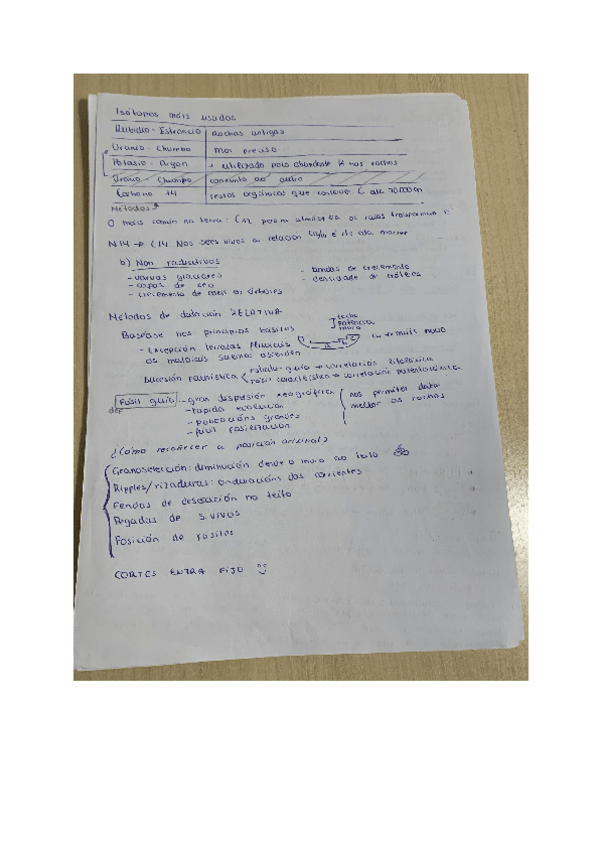 Isótopos máis usados
Rubidio - Estroncio Rochas antigas
Uranio - Chumbo moi preciso
Potasio - Argon + utilizado polo abundante K nas rochas
Uranio - Chumbo conxunto ao outro
Carbono 14 restos orgánicos que conteñe C ata 70000m
Métodos
O máis común na terra: C12 pero na atmosfera os raios transforman o
N14 → C14 Nos seres vivos a relación é cte ata morrer
b) Non radiactivos
- varvas glaciares - bandas de crecemento
- capas de xeo - densidade de cráteres
- crecemento de aneis en árbores
Métodos de datación RELATIVA
Baséase nos principios básicos
techo
potencia
muro
+ novo
- Excepción terrazas fluviais
os materiais
Sucesión faunística
rocha guía → correlación litolóxica
fósil característico → correlación paleontolóxica
Fósil guía - gran dispersión xeográfica nos permiten datar
def - rápida evolución mellor as rochas
- poboacións grandes
- fácil fosilización
¿Cómo recoñecer a posición orixinal?
Granoselección: diminución desde o muro ao teito
Ripples/rizaduras: ondulacións das correntes
Fendas de desecación no teito
Pegadas de s. vivos
Posición de fósiles
CORTES ENTRA FIJO